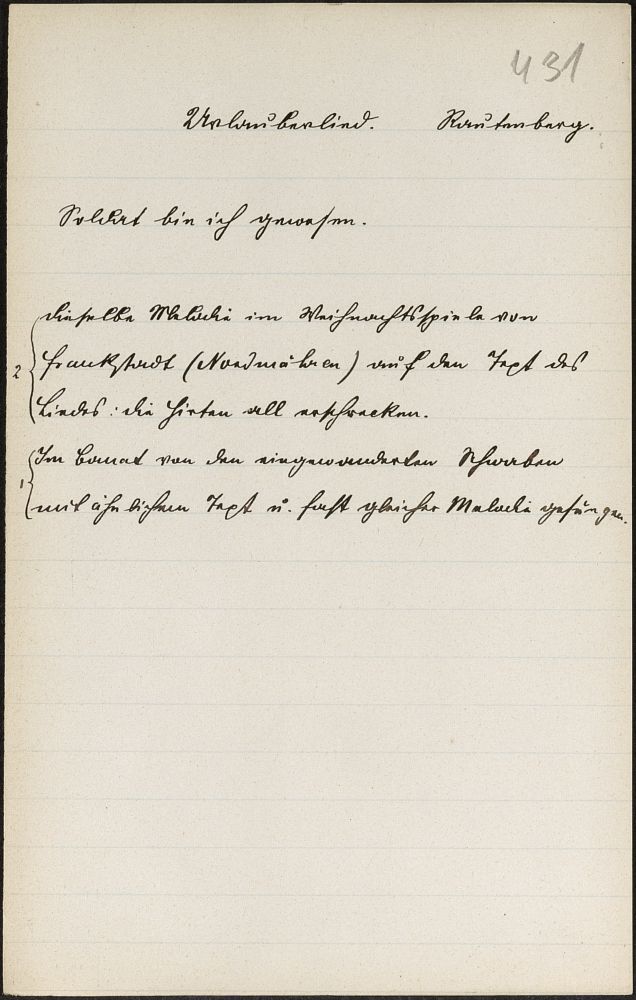 431
Urlauberlied. Rautenberg.
Soldat bin ich gewesen.
dieselbe Melodie im Weihnachtsspiele von
2 Frankstadt (Nordmähren) auf den Text des
Liedes: die Hirten all erschrecken.
Im Banat von den eingewanderten Schwaben
1 mit ähnlichem Text u. fast gleicher Melodie gesungen.